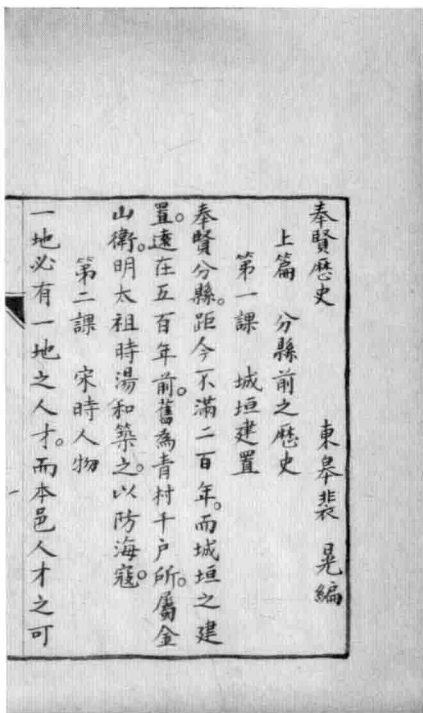 奉賢歷史　東皋裴晃編
上篇　分縣前之歷史
第一課　城垣建置
奉賢分縣。距今不滿二百年。而城垣之建
置。遠在五百年前。舊為青村千户所。屬金
山衛。明太祖時湯和築之。以防海寇。
第二課　宋時人物
一地必有一地之人才。而本邑人才之可
一